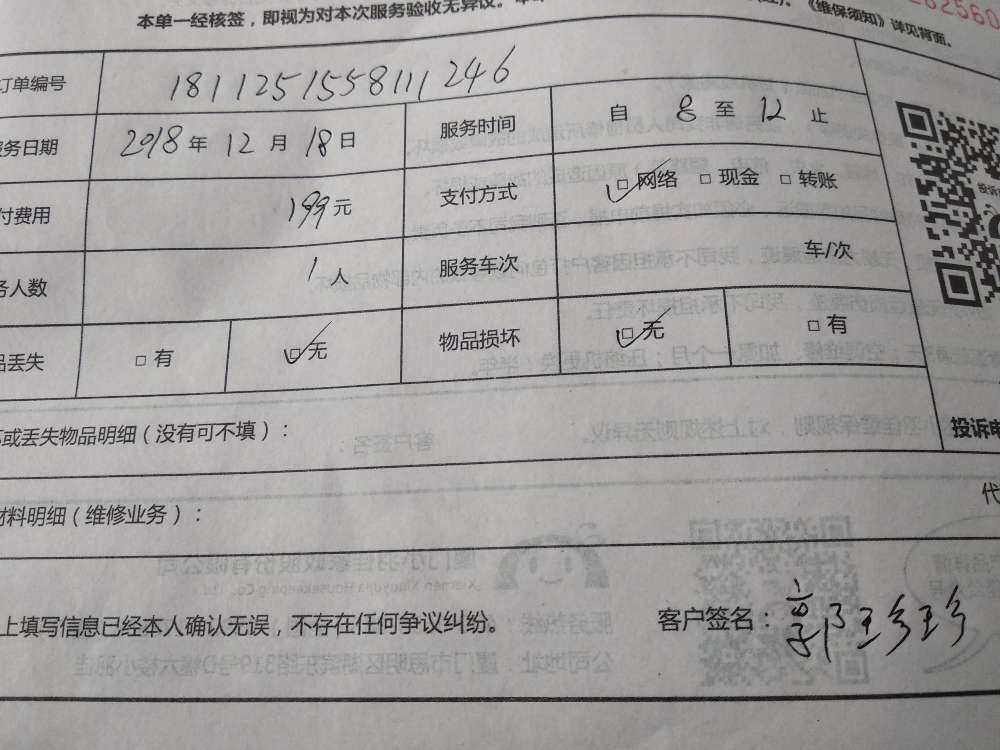 本单一经核签，即视为对本次服务验收无异议。
《维保须知》详见背面。
订单编号 1811251558111246
服务日期 2018年12月18日 服务时间 自8至12止
付费用 199元 支付方式 ☑网络 □现金 □转账
务人数 1人 服务车次 车/次
品丢失 □有 ☑无 物品损坏 ☑无 □有
或丢失物品明细（没有可不填）：
投诉电
材料明细（维修业务）：
代
上填写信息已经本人确认无误，不存在任何争议纠纷。 客户签名：郭珍珍